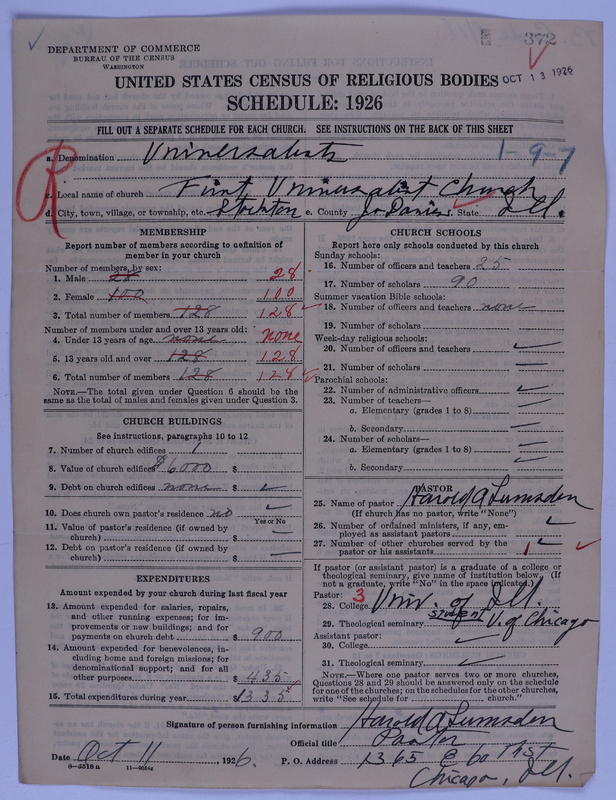 DEPARTMENT OF COMMERCE
BUREAU OF THE CENSUS
WASHINGTON
372
UNITED STATES CENSUS OF RELIGIOUS BODIES
OCT 13 1926
SCHEDULE: 1926
FILL OUT A SEPARATE SCHEDULE FOR EACH CHURCH. SEE INSTRUCTIONS ON THE BACK OF THIS SHEET
R
a. Denomination Universalists 1-9-7
c. Local name of church First Universalist Church
d. City, town, village, or township, etc. Stockton e. County Jo Daviess State Ill.
MEMBERSHIP
Report number of members according to definition of
member in your church
Number of members, by sex:
1. Male 28 28
2. Female 100 100
3. Total number of members 128 128
Number of members under and over 13 years old:
4. Under 13 years of age none none
5. 13 years old and over 128 128
6. Total number of members 128 128
NOTE.—The total given under Question 6 should be
same as the total of males and females given under Question 3.
CHURCH BUILDINGS
See instructions, paragraphs 10 to 12
7. Number of church edifices 1
8. Value of church edifices $6000 $
9. Debt on church edifices none $
10. Does church own pastor's residence no
Yes or No
11. Value of pastor's residence (if owned by
church) $
12. Debt on pastor's residence (if owned by
church) $
EXPENDITURES
Amount expended by your church during last fiscal year
13. Amount expended for salaries, repairs,
and other running expenses; for im-
provements or new buildings; and for
payments on church debt $ 900
14. Amount expended for benevolences, in-
cluding home and foreign missions; for
denominational support; and for all
other purposes $ 435
15. Total expenditures during year $1335
CHURCH SCHOOLS
Report here only schools conducted by this church
Sunday schools:
16. Number of officers and teachers 25
17. Number of scholars 90
Summer vacation Bible schools:
18. Number of officers and teachers none
19. Number of scholars
Week-day religious schools:
20. Number of officers and teachers
21. Number of scholars
Parochial schools:
22. Number of administrative officers
23. Number of teachers—
a. Elementary (grades 1 to 8)
b. Secondary
24. Number of scholars—
a. Elementary (grades 1 to 8)
b. Secondary
PASTOR
25. Name of pastor Harold A Lumsden
(If church has no pastor, write "None")
26. Number of ordained ministers, if any, em-
ployed as assistant pastors
27. Number of other churches served by the
pastor or his assistants 1
If pastor (or assistant pastor) is a graduate of a college or
theological seminary, give name of institution below. (If
not a graduate, write "No" in the space indicated.)
Pastor: 3
28. College Univ. of Ill.
29. Theological seminary student U. of Chicago
Assistant pastor:
30. College
31. Theological seminary
NOTE.—Where one pastor serves two or more churches,
Questions 28 and 29 should be answered only on the schedule
for one of the churches; on the schedules for the other churches,
write "See schedule for church."
Signature of person furnishing information Harold A Lumsden
Official title Pastor
Date Oct 11, 1926. P. O. Address 1365 E 60th St
Chicago, Ill.
8-5518a